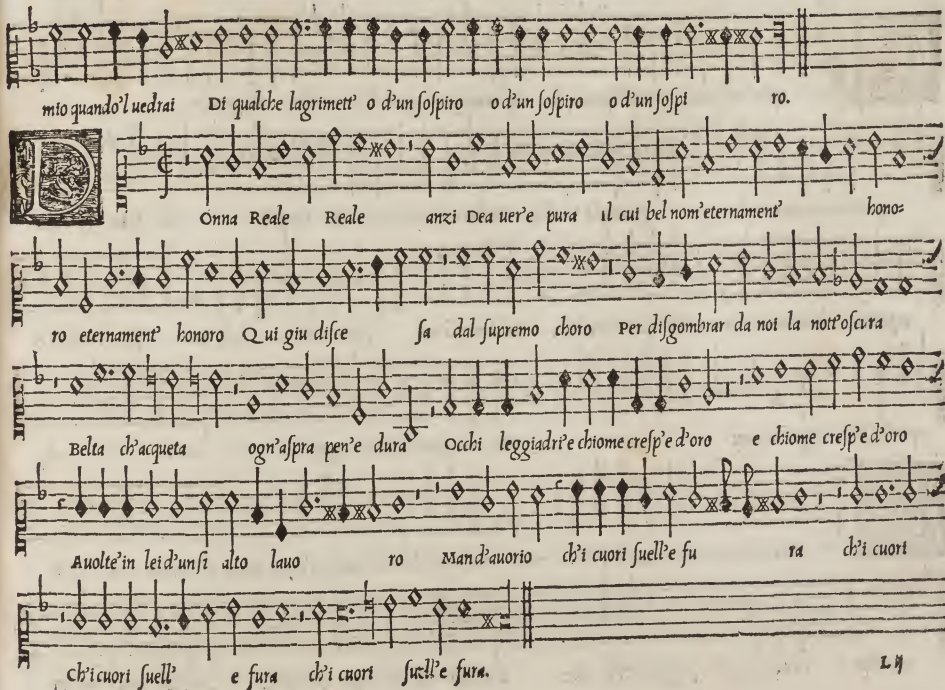 mio quando'l uedrai Di qualche lagrimett' o d'un ſoſpiro o d'un ſoſpiro o d'un ſoſpi ro.
D Onna Reale Reale anzi Dea uer'e pura il cui bel nom'eternament' hono=
ro eternament' honoro Qui giu diſce ſa dal ſupremo choro Per diſgombrar da noi la nott'oſcura
Belta ch'acqueta ogn'aſpra pen'e dura Occhi leggiadri'e chiome creſp'e d'oro e chiome creſp'e d'oro
Auolte'in lei d'un ſi alto lauo ro Man d'auorio ch'i cuori ſuell'e fu ra ch'i cuori
Ch'i cuori ſuell' e fura ch'i cuori ſuell'e fura.